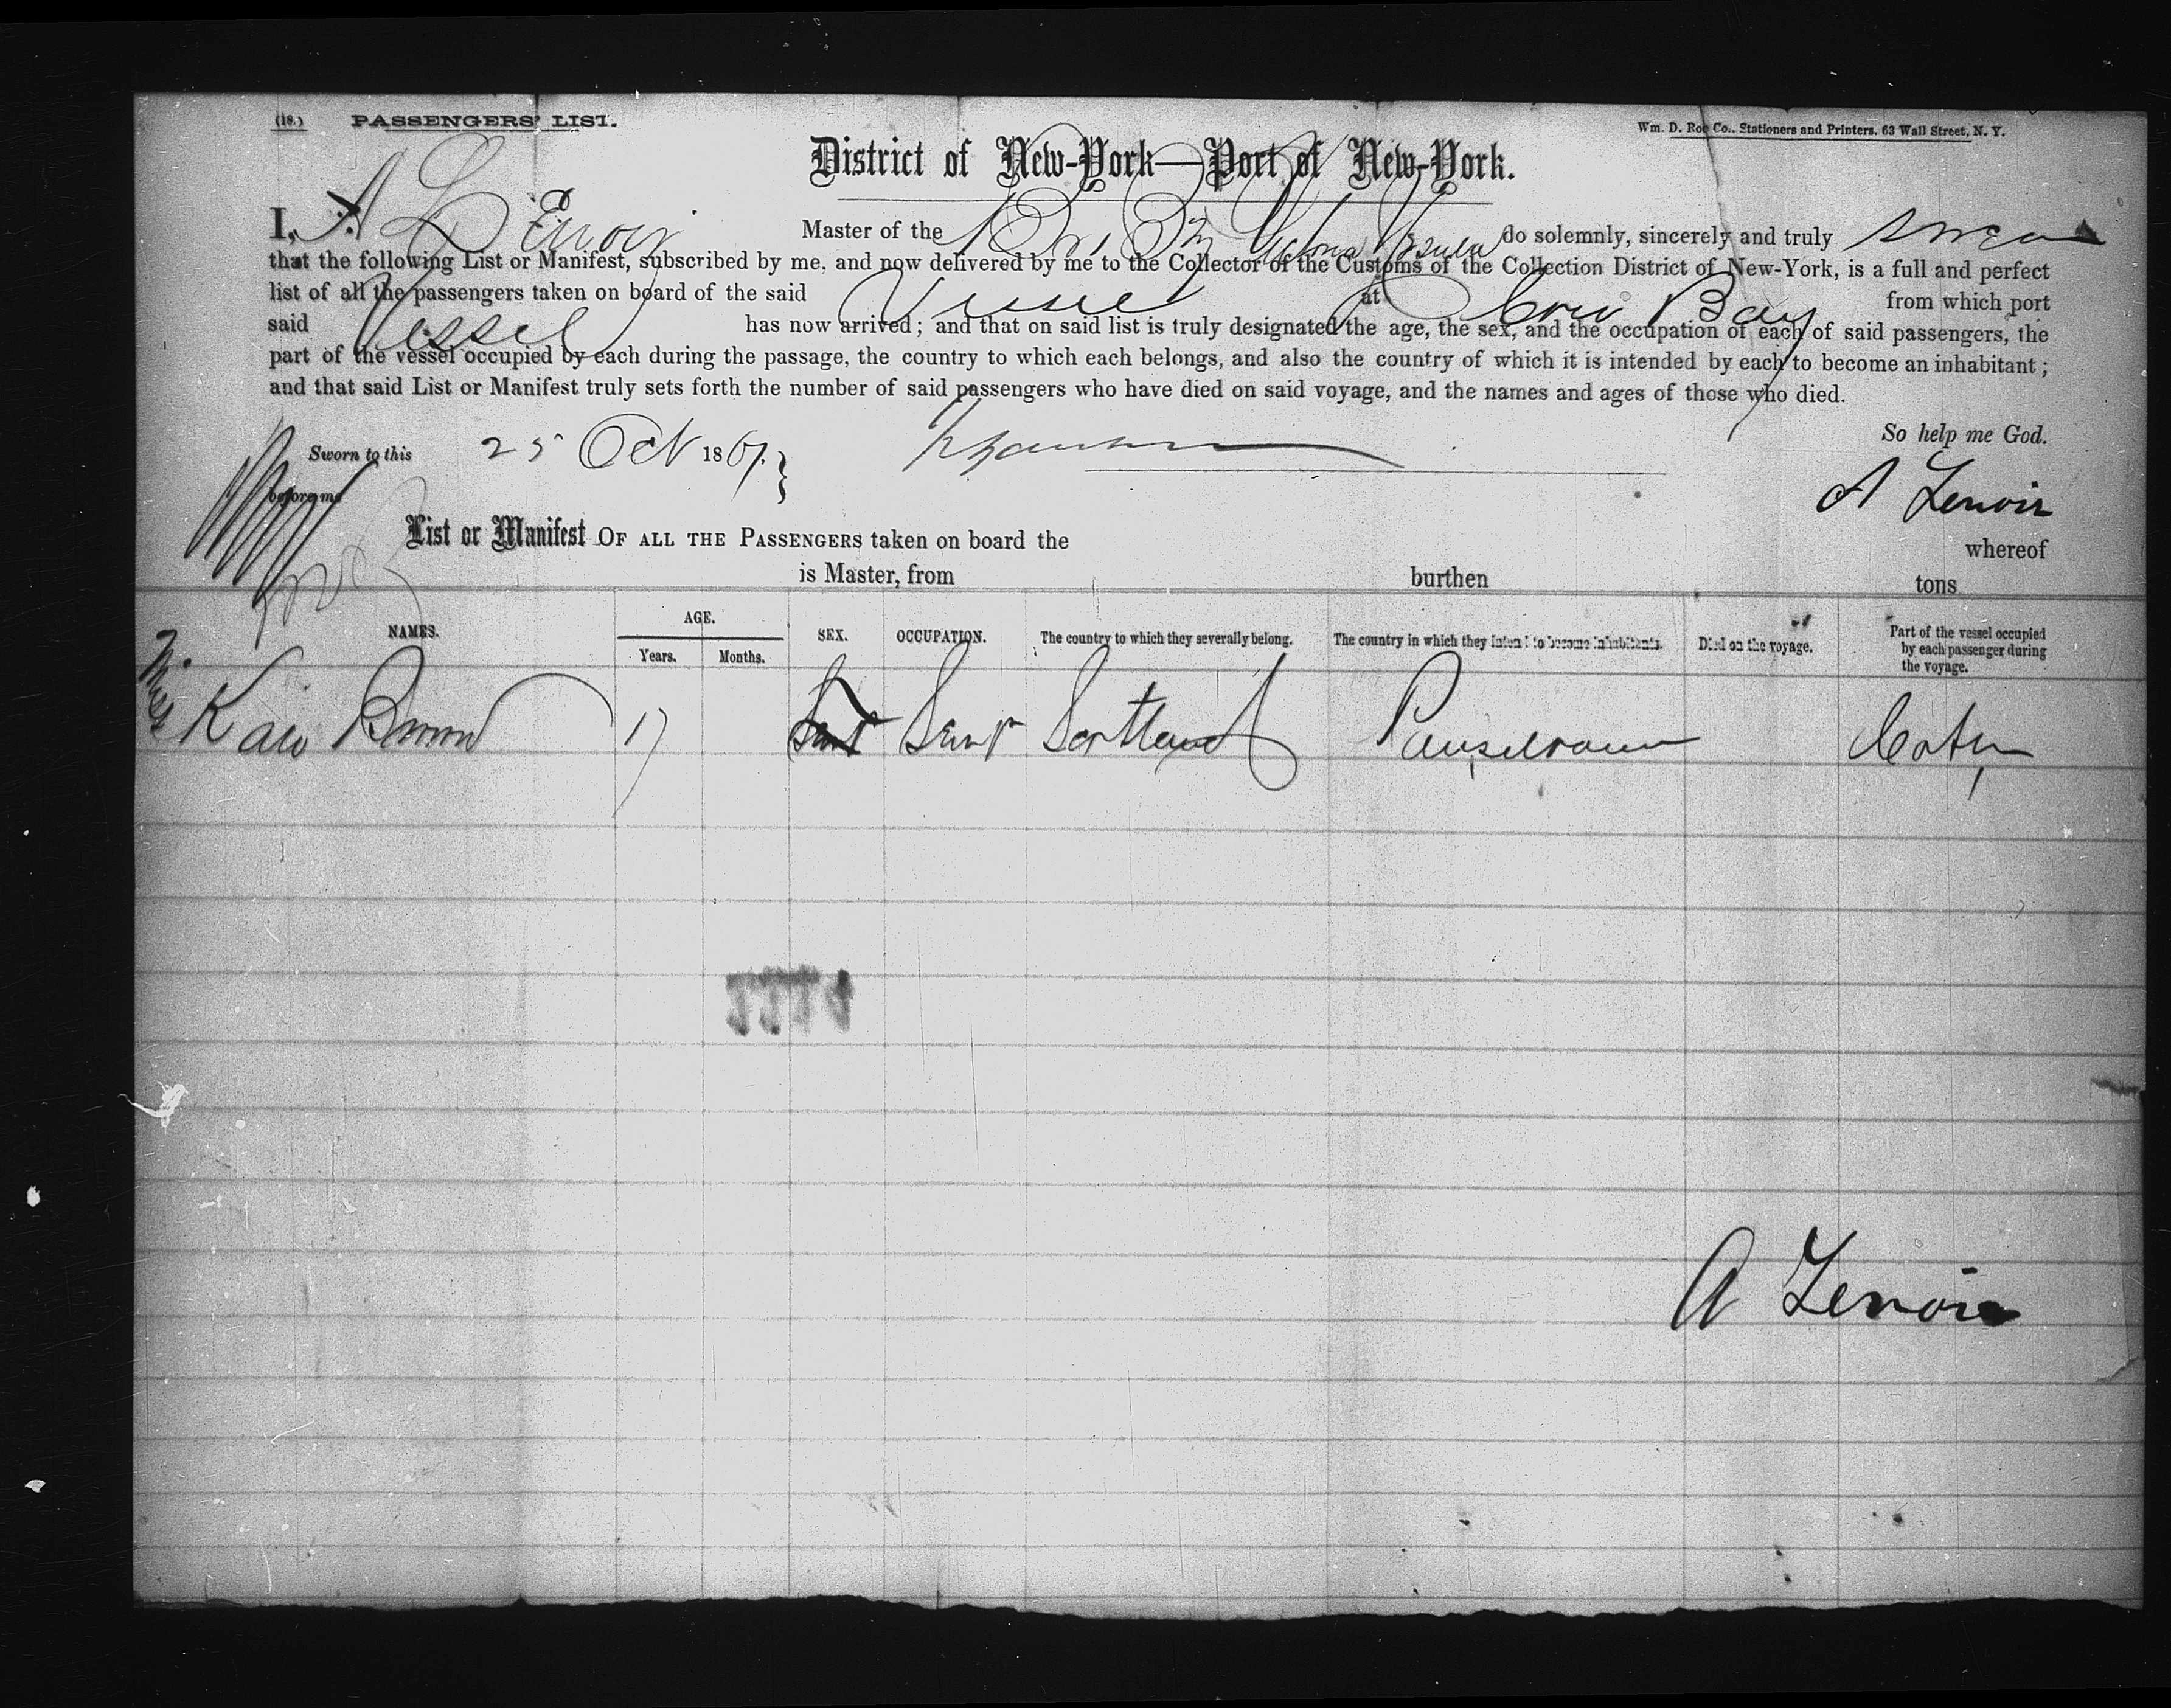 (18.) PASSENGERS' LIST. Wm. D. Roe Co., Stationers and Printers, 63 Wall Street, N. Y.
District of New-York—Port of New-York.
I, A Lenoir Master of the do solemnly, sincerely and truly swear
that the following List or Manifest, subscribed by me, and now delivered by me to the Collector of the Customs of the Collection District of New-York, is a full and perfect
list of all the passengers taken on board of the said Vessel at Cow Bay from which port
said Vessel has now arrived; and that on said list is truly designated the age, the sex, and the occupation of each of said passengers, the
part of the vessel occupied by each during the passage, the country to which each belongs, and also the country of which it is intended by each to become an inhabitant;
and that said List or Manifest truly sets forth the number of said passengers who have died on said voyage, and the names and ages of those who died.
So help me God.
Sworn to this 25 Oct 1867.
before me
A Lenoir
List or Manifest OF ALL THE PASSENGERS taken on board the whereof
is Master, from burthen tons
NAMES. AGE. Years. Months. SEX. OCCUPATION. The country to which they severally belong. The country in which they intend to become inhabitants. Died on the voyage. Part of the vessel occupied by each passenger during the voyage.
Miss Brown 17 Servt Servt
A Lenoir